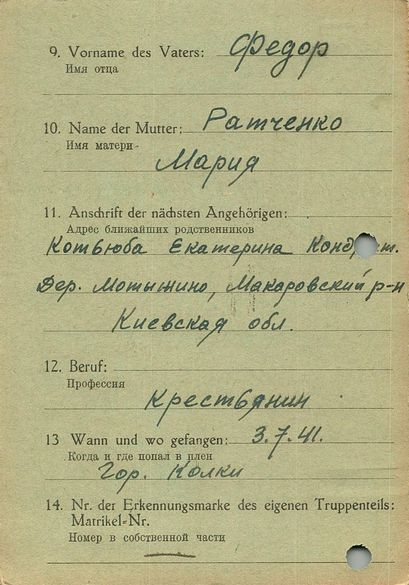 9. Vorname des Vaters: Федор
Имя отца
10. Name der Mutter: Ратченко
Имя матери- Мария
11. Anschrift der nächsten Angehörigen:
Адрес ближайших родственников
Котьюба Екатерина
Дер. Мотыжино, Макаровский р-н
Киевская обл.
12. Beruf:
Профессия
Крестьянин
13 Wann und wo gefangen: 3.7.41.
Когда и где попал в плен
Гор. Колки
14. Nr. der Erkennungsmarke des eigenen Truppenteils:
Matrikel-Nr.
Номер в собственной части